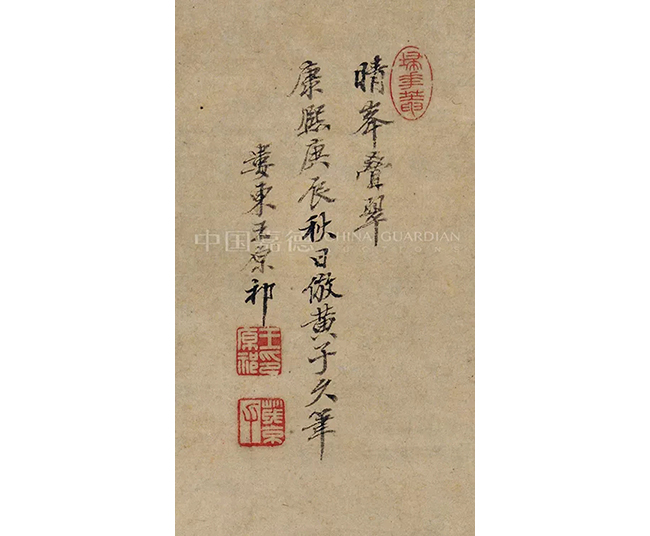 晴峯疊翠
康熙庚辰秋日倣黄子久筆
婁東王原祁
掃華菴
王原祁印
麓臺
中国嘉德 CHINA GUARDIAN